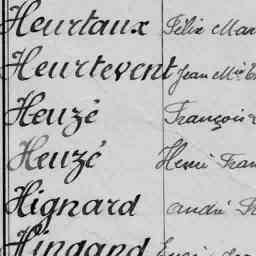 Heurtaux Félix Mar
Heurtevent Jean Mie
Heuzé François
Heuzé Henri Fran
Hignard André
Hingand